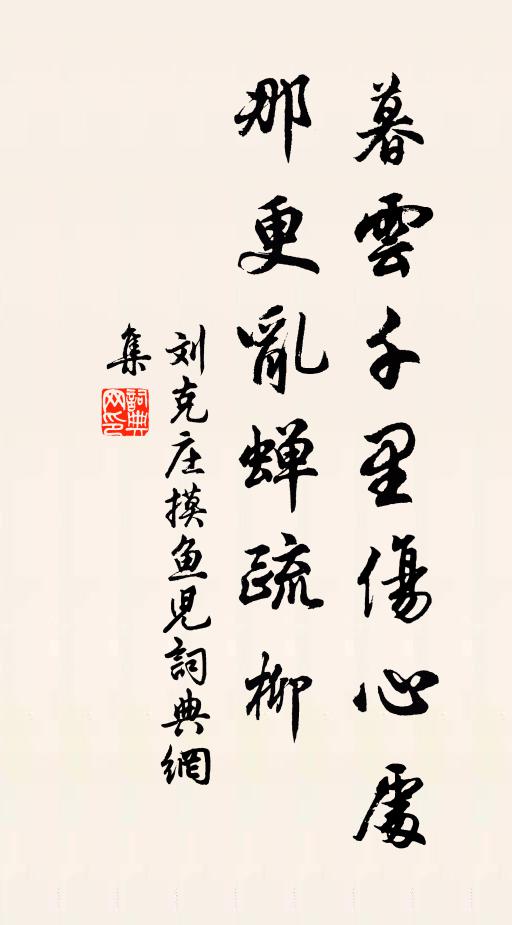 暮雲千里傷心處
那更亂蟬疏柳
刘克庄摸鱼児詞典網
集
詞典网印